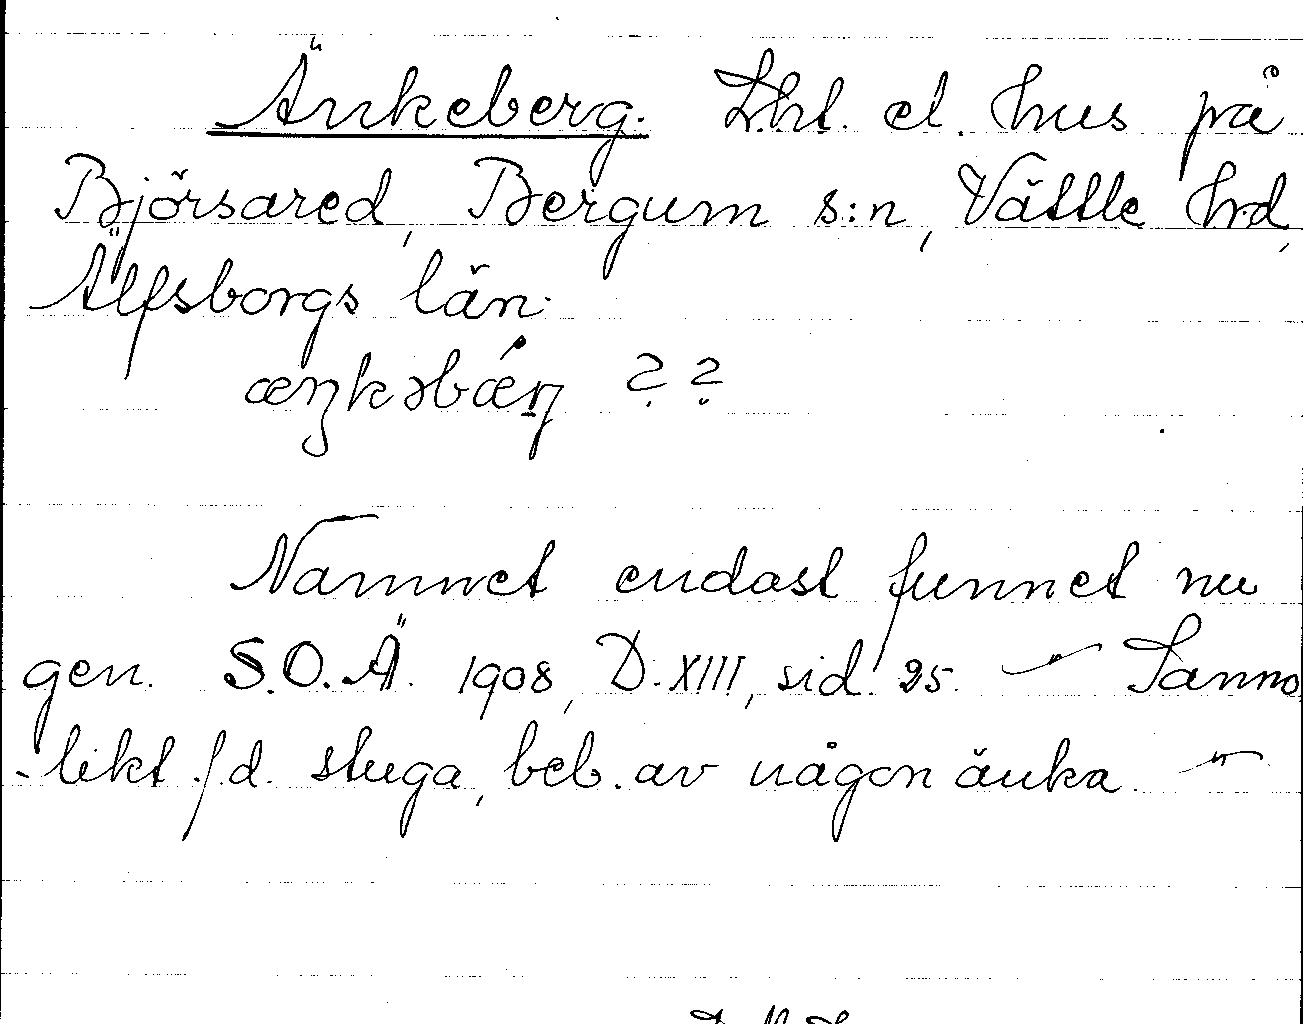 Änkeberg. Lht. el. hus på
Björsared, Bergum s:n, Vättle hd,
Älfsborgs län.
æŋkəbǽrŋ ??
Namnet endast funnet nu
gen. S.O.Ä. 1908, D. XIII, sid. 25. — Sanno
-likt f.d. stuga, beb. av någon änka. —